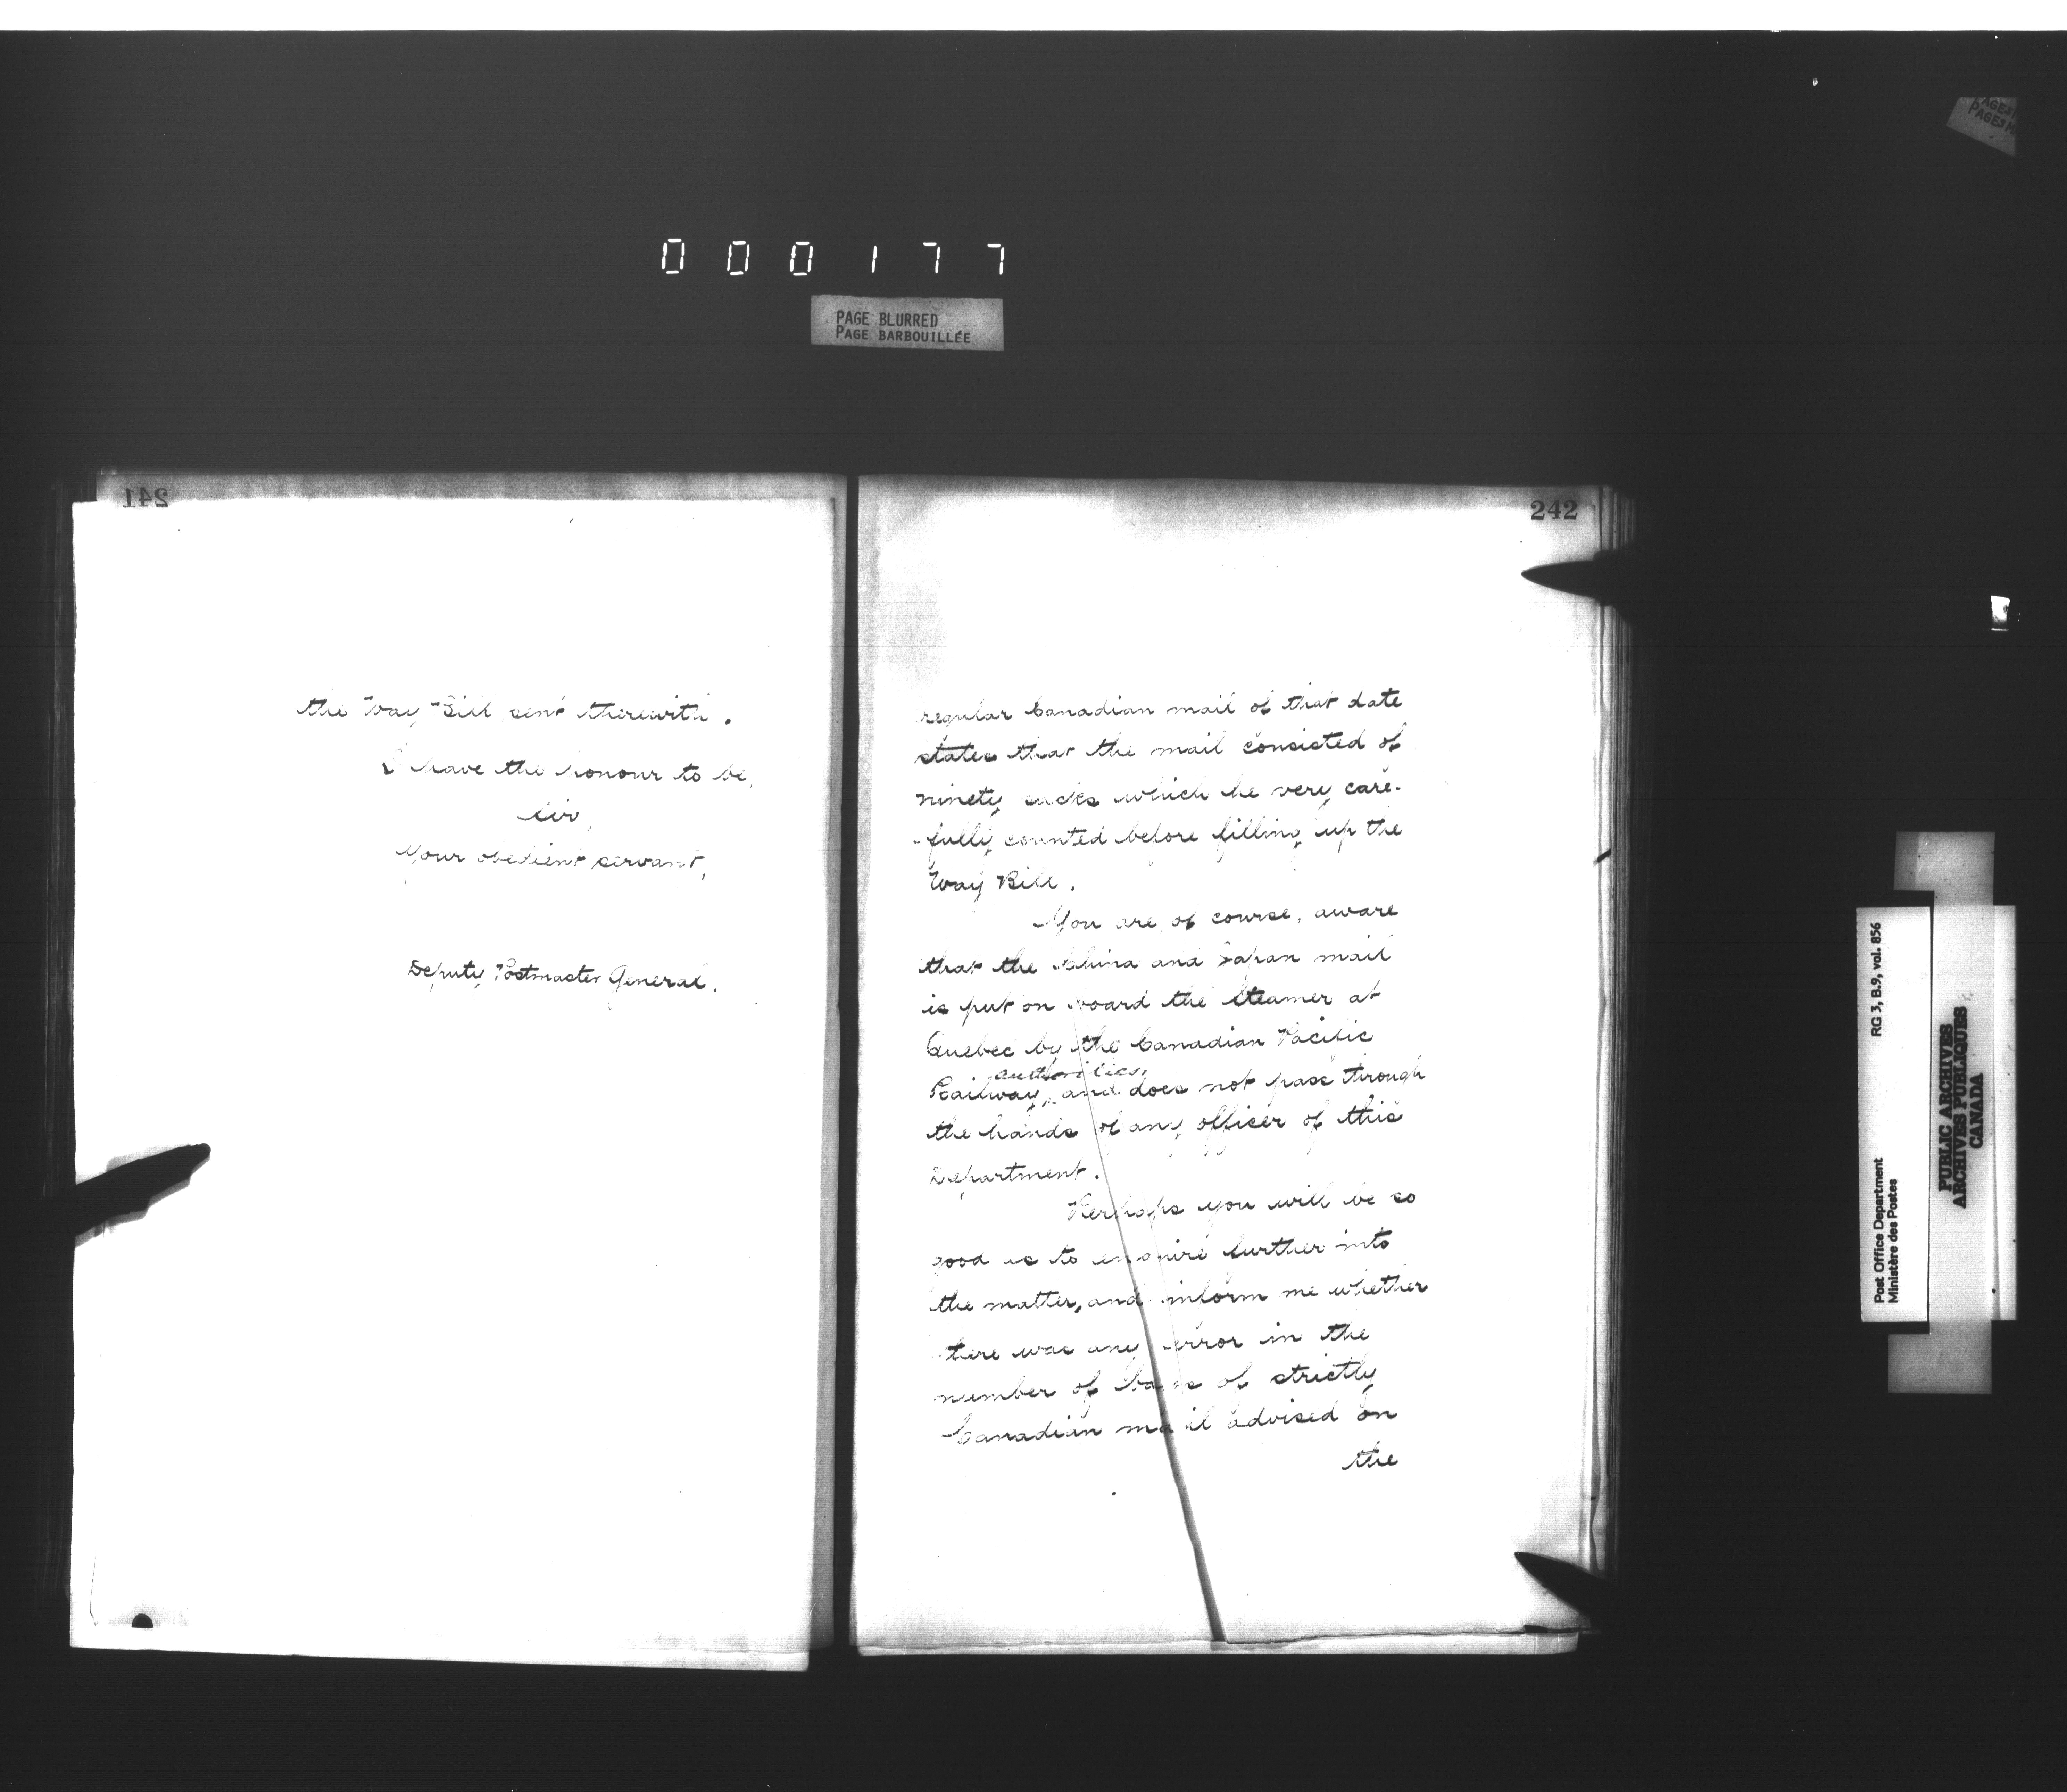 000177
PAGE BLURRED
PAGE BARBOUILLÉE
241
the Way Bill sent therewith.
I have the honour to be,
Sir,
Your obedient servant,
Deputy Postmaster General.
242
regular Canadian mail of that date
states that the mail consisted of
ninety sacks which he very care-
-fully counted before filling up the
Way Bill.
You are of course, aware
that the China and Japan mail
is put on board the Steamer at
Quebec by the Canadian Pacific
authorities,
Railway, and does not pass through
the hands of any officer of this
Department.
Perhaps you will be so
good as to enquire further into
the matter, and inform me whether
there was any error in the
number of bags of strictly
Canadian mail advised on
the
PAGES
PAGES M
RG 3, B.9, vol. 856
Post Office Department
Ministère des Postes
PUBLIC ARCHIVES
ARCHIVES PUBLIQUES
CANADA